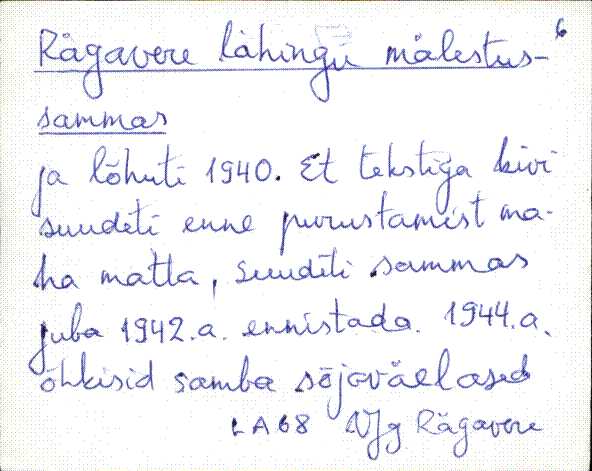 6
Rägavere lahingu mälestus-
sammas
ja lõhuti 1940. Et tekstiga kivi
suudeti enne purustamist ma-
ha matta, suudeti sammas
juba 1942.a. ennistada. 1944.a.
õhkisid samba sõjaväelased
LA68 VJg Rägavere